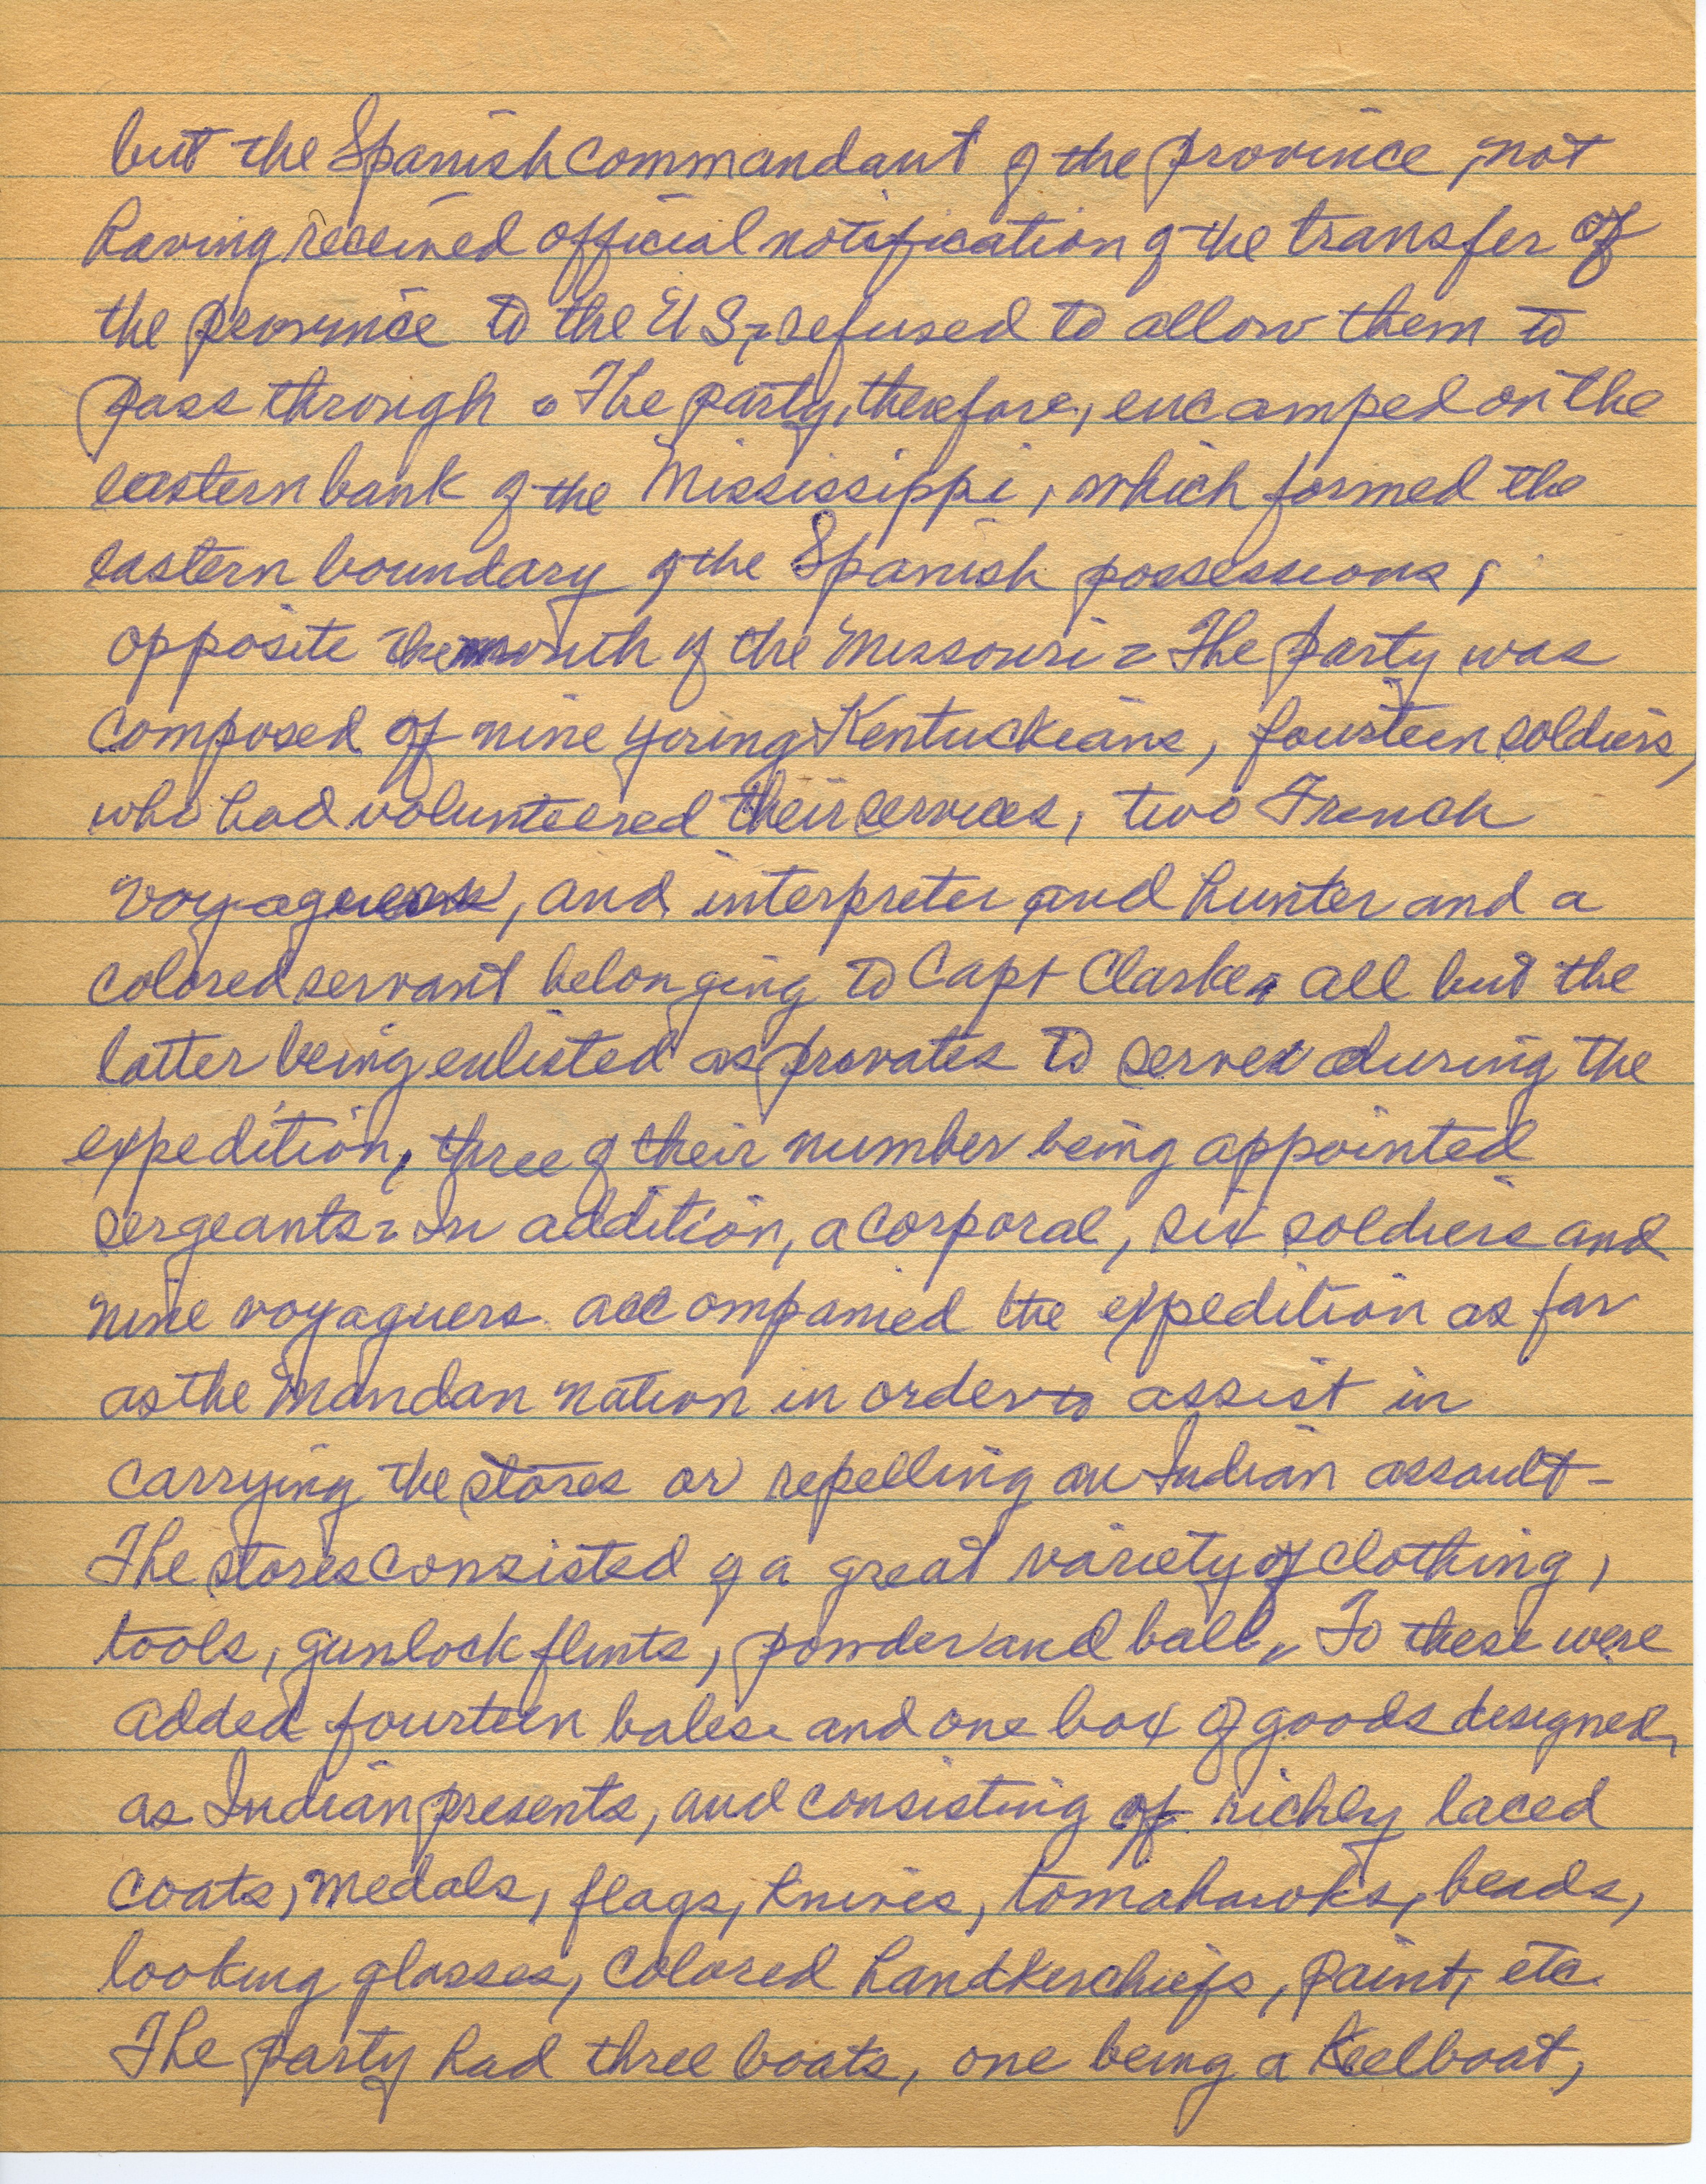 but the Spanish commandant of the province, not
having received official notification of the transfer of
the province to the U S, refused to allow them to
pass through. The party, therefore, encamped on the
eastern bank of the Mississippi, which formed the
eastern boundary of the Spanish possessions,
opposite the mouth of the Missouri. The party was
composed of nine young Kentuckians, fourteen soldiers,
who had volunteered their services, two French
voyaguers, and interpreter and hunter and a
colored servant belonging to Capt Clarke, all but the
latter being enlisted as privates to serve during the
expedition, three of their number being appointed
sergeants. In addition, a corporal, six soldiers and
nine voyaguers accompanied the expedition as far
as the Mandan nation in order to assist in
carrying the stores or repelling an Indian assault -
The stores consisted of a great variety of clothing,
tools, gunlock flints, powder and ball. To these were
added fourteen bales and one box of goods designed,
as Indian presents, and consisting of richly laced
coats, medals, flags, knives, tomahawks, beads,
looking glasses, colored handkerchiefs, paint, etc.
The party had three boats, one being a keelboat,